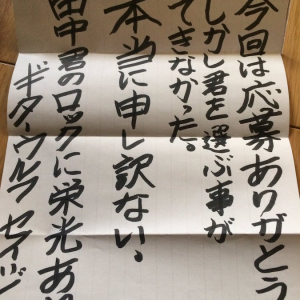 今回は応募ありがとう
しかし君を選ぶ事が
できなかった。
本当に申し訳ない。
田中君のロックに栄光あ
ギターウルフ セイジ